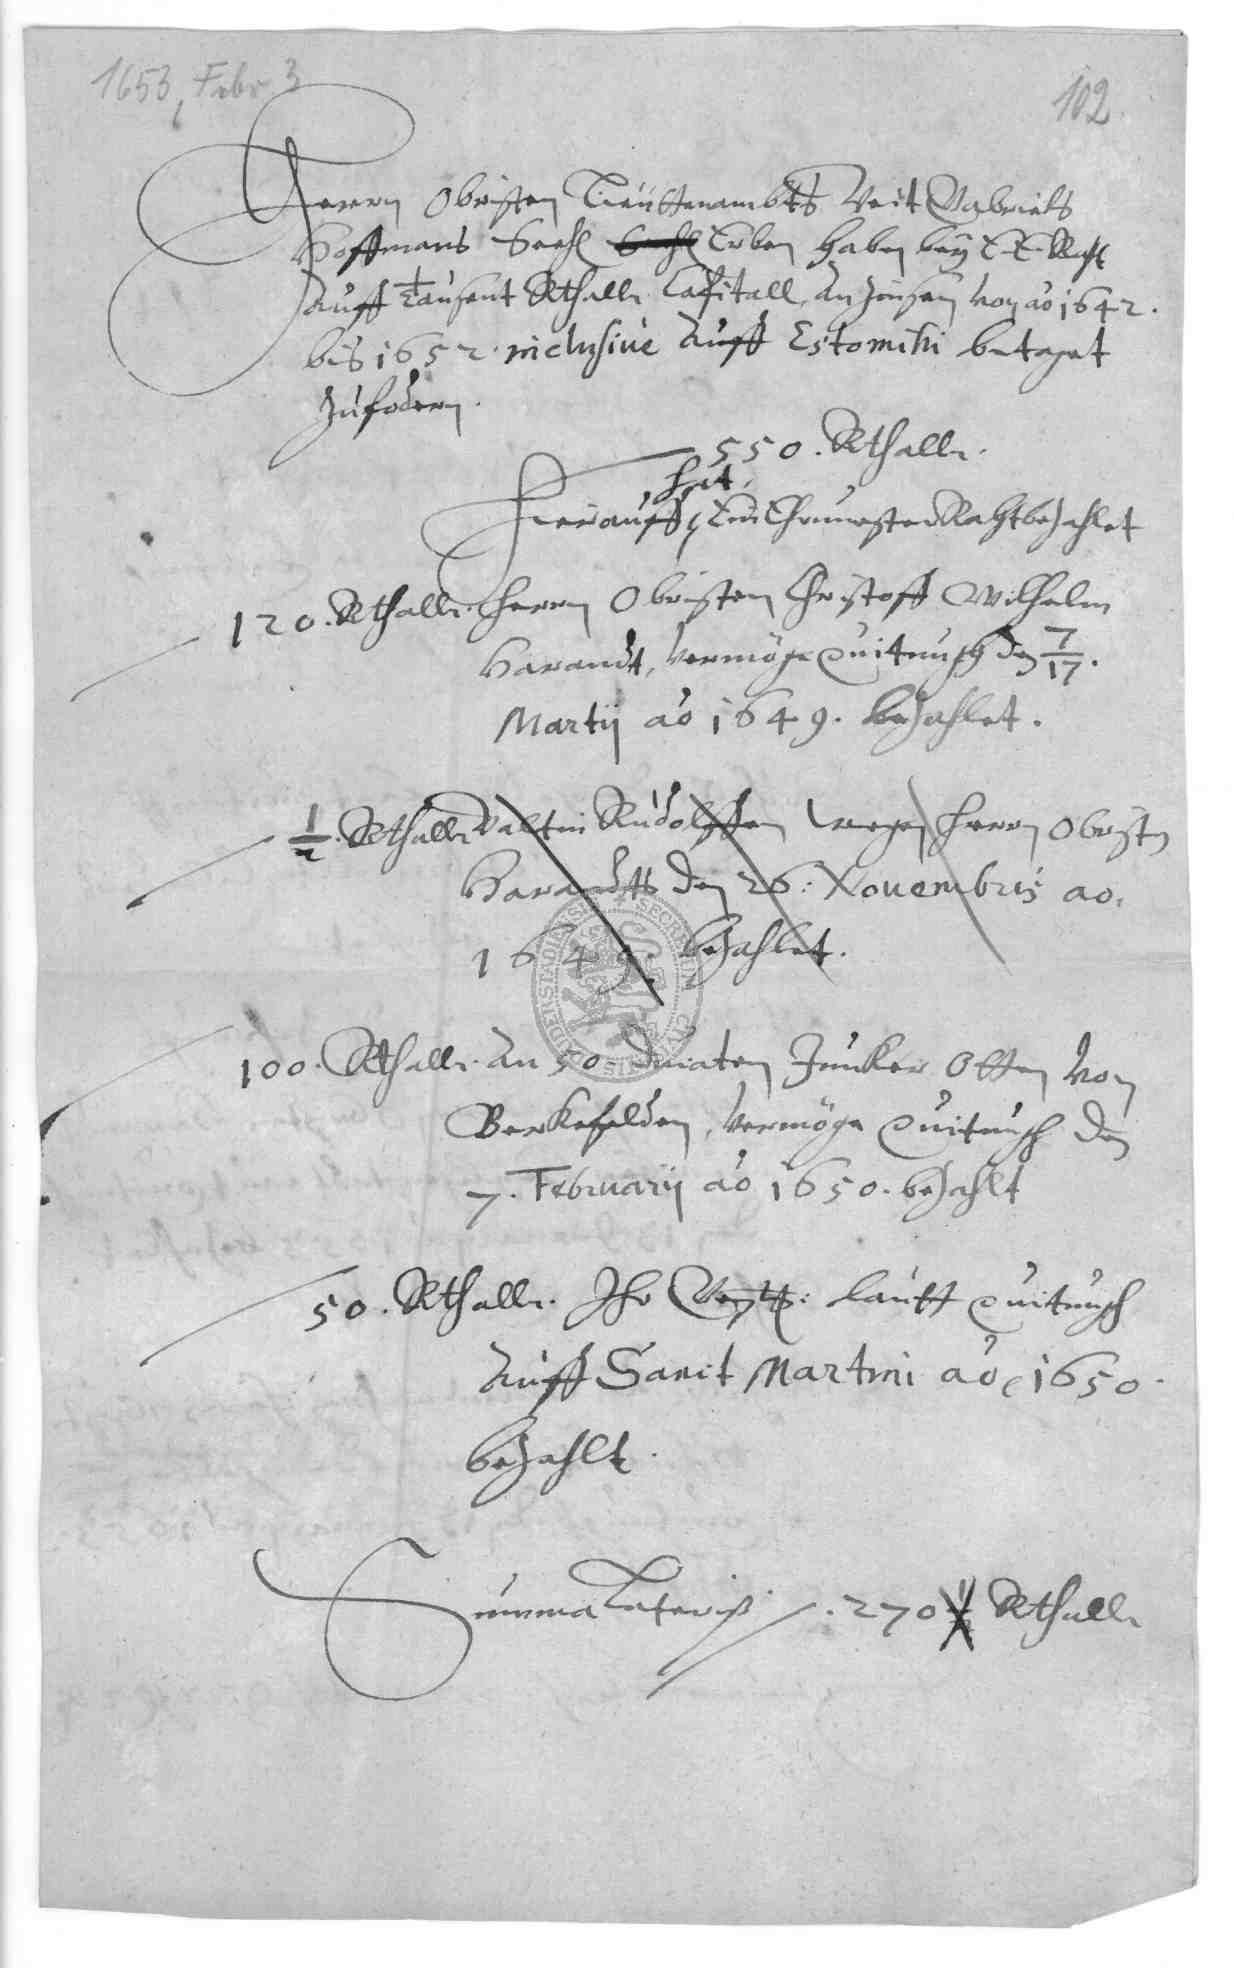 1653, Febr 3
102
Herrn Obristen Lieuttenambts Veit Gabriels
Hoffmans Seehl Erben haben bey E E Raht
auff Tausent Rthallr Capitall, an Zinsen von ao 1642.
bis 1652. inclusive Auff Estomihi betaget
zufodern.
550. Rthallr.
hat
Hierauff Ein Ehrnvester Raht bezahlet
120. Rthallr. Herrn Obristen Christoff Wilhelm
Harandt, vermöge Quitung den 7/17.
Martij ao 1649. bezahlet.
1/2. Rthallr Valtin Rudolffen wegen Herrn Obristen
Harandts den 26: Novembris ao.
1649. bezahlet.
100. Rthallr. an 50 Ducaten Juncker Otten von
Berkefelden, vermöge Quitung den
7. Februarij ao 1650. bezahlt
50. Rthallr. Ihr lautt Quitung
Auff Sanct Martini ao 1650.
bezahlt.
Summa Lateris 270 Rthallr